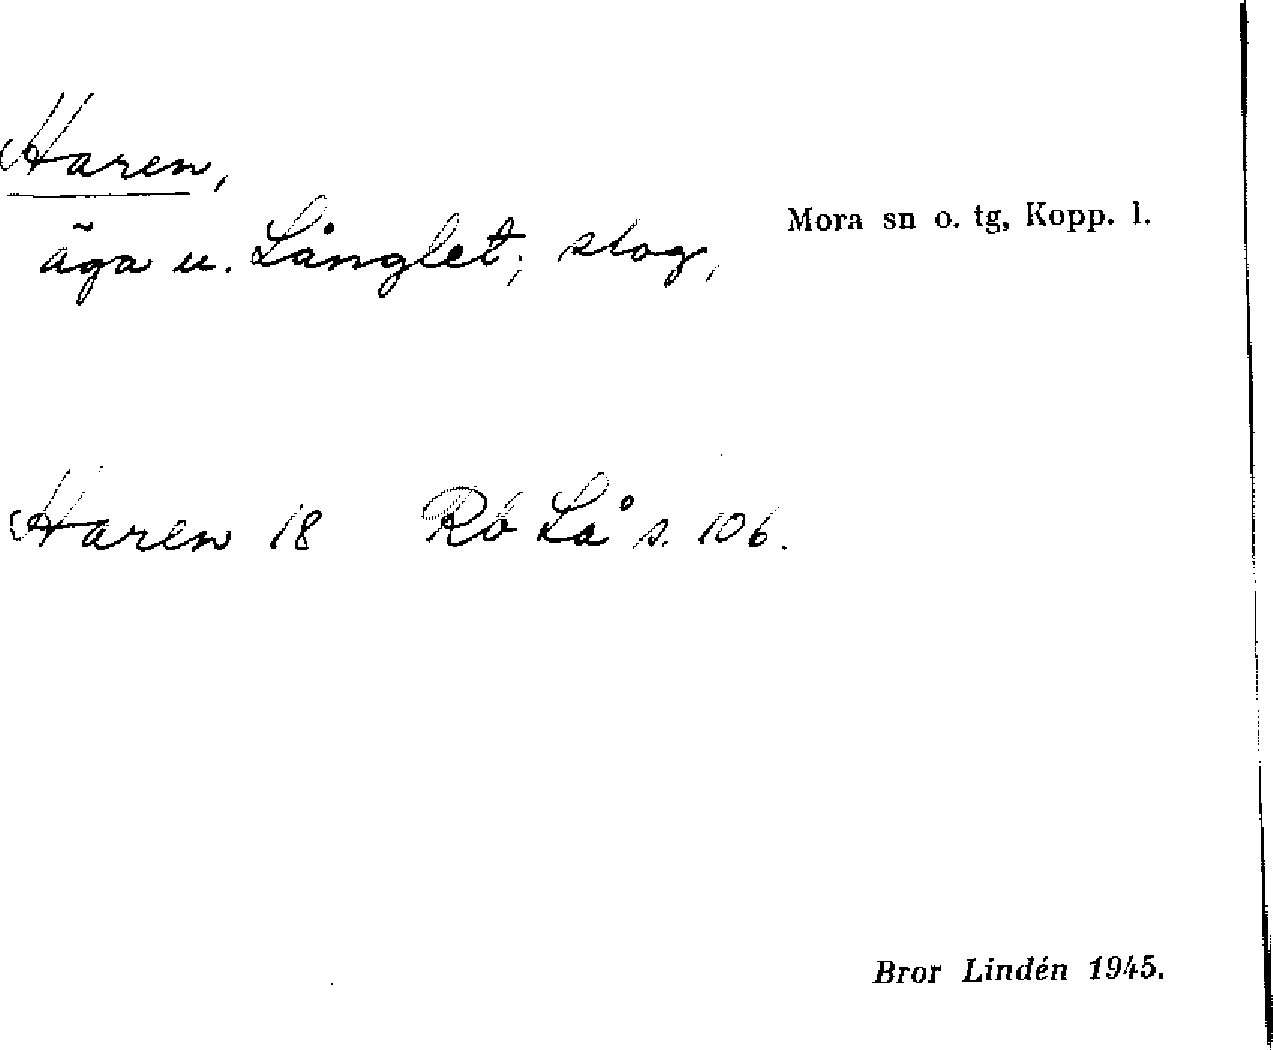 Haren,
Mora sn o. tg, Kopp. l.
äga u. Långlet; slog,
Haren 18 Rb Lå s. 106.
Bror Lindén 1945.